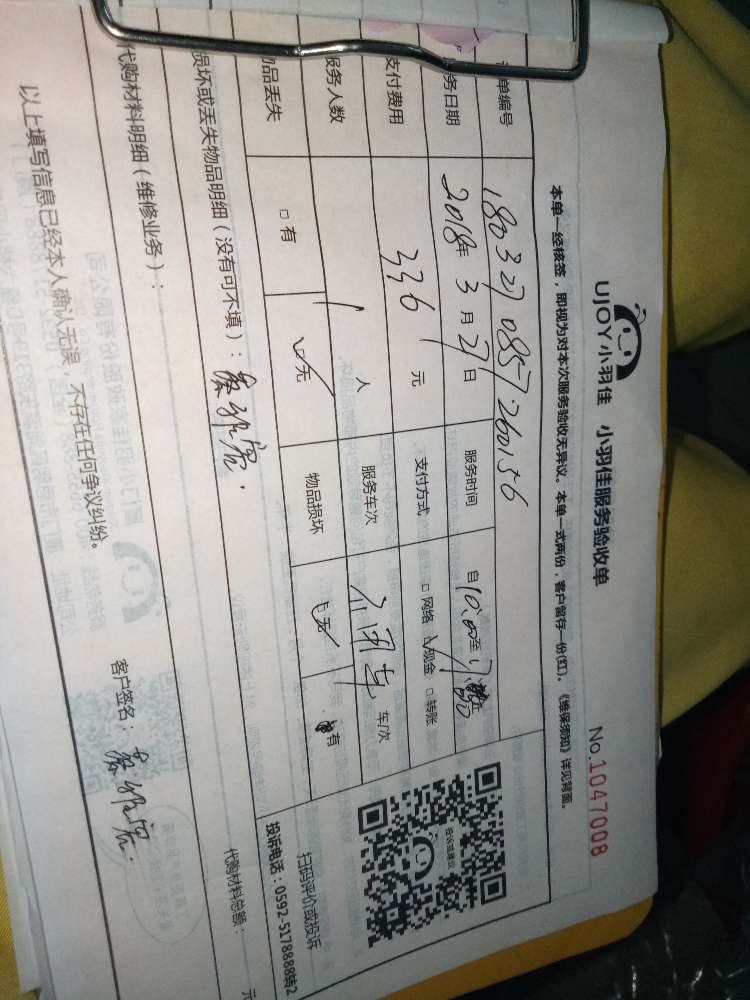 UJOY小羽佳 小羽佳服务验收单
No.1047008
本单一经核签，即视为对本次服务验收无异议。本单一式两份，客户留存一份(红)。《维保须知》详见背面。
单编号 1803270857260156
务日期 2018年3月27日 服务时间 自10:00至17:
支付费用 336元 支付方式 □网络 ☑现金 □转账
服务人数 1人 服务车次 车/次
物品丢失 □有 ☑无 物品损坏 ☑无 有
损坏或丢失物品明细（没有可不填）：
扫码评价或投诉
投诉电话：0592-5178888转2
代购材料明细（维修业务）：
代购材料总额： 元
以上填写信息已经本人确认无误，不存在任何争议纠纷。
客户签名：